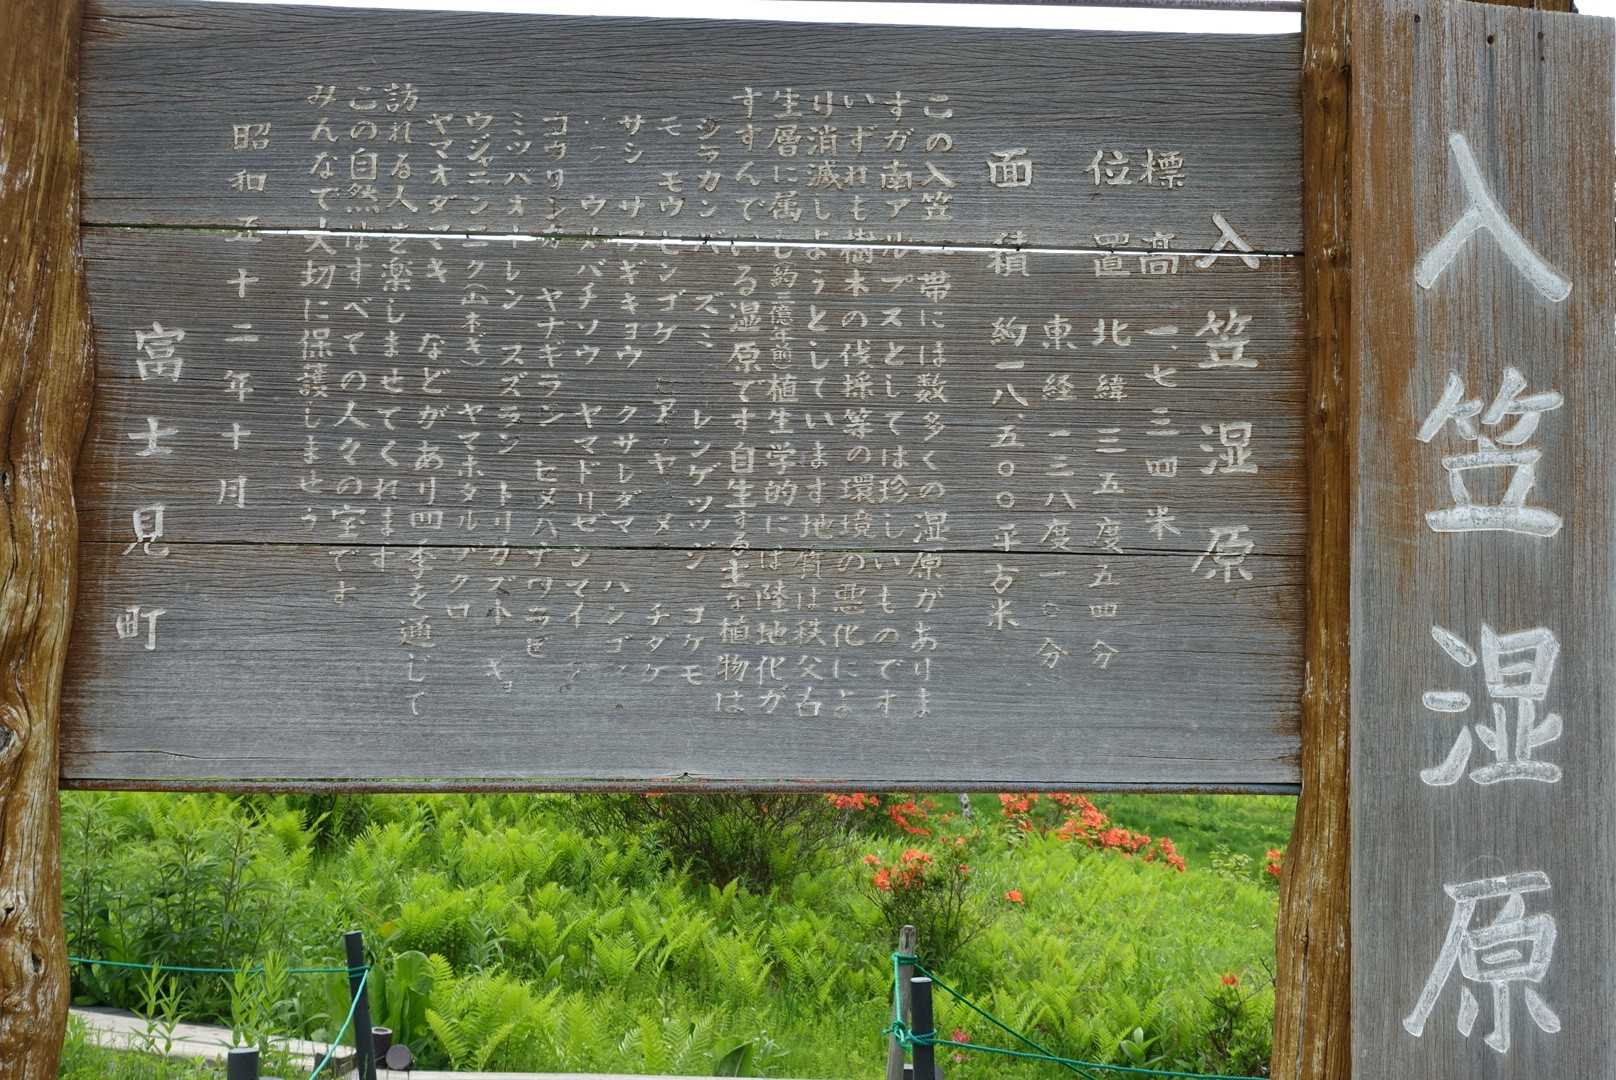 入笠湿原
入笠湿原
標高 一、七三四米
位置 北緯三五度五四分
東経一三八度一〇分
面積 約一八、五〇〇平方米
この入笠一帯には数多くの湿原がありま
すガ南アルプスとしては珍しいものです
いずれも樹木の伐採等の環境の悪化によ
り消滅しようとしています地質は秩父古
生層に属し(約二億年前)植生学的には陸地化が
すすんでいる湿原です自生する主な植物は
シラカンバ ズミ レンゲツツジ コケモモ
モウセンゴケ アヤメ チダケ
サシ サワギキョウ クサレダマ ハンゴン
ウメバチソウ ヤマドリゼンマイ
コウリンカ ヤナギラン ヒメハナワラビ
ミツバオーレン スズラン トリカブト
ウジャニンニク(山ネギ) ヤマホタルブクロ
ヤマオダマキ などがあり四季を通じて
訪れる人々を楽しませてくれます
この自然はすべての人々の宝です
みんなで大切に保護しませう
昭和五十二年十月
富士見町